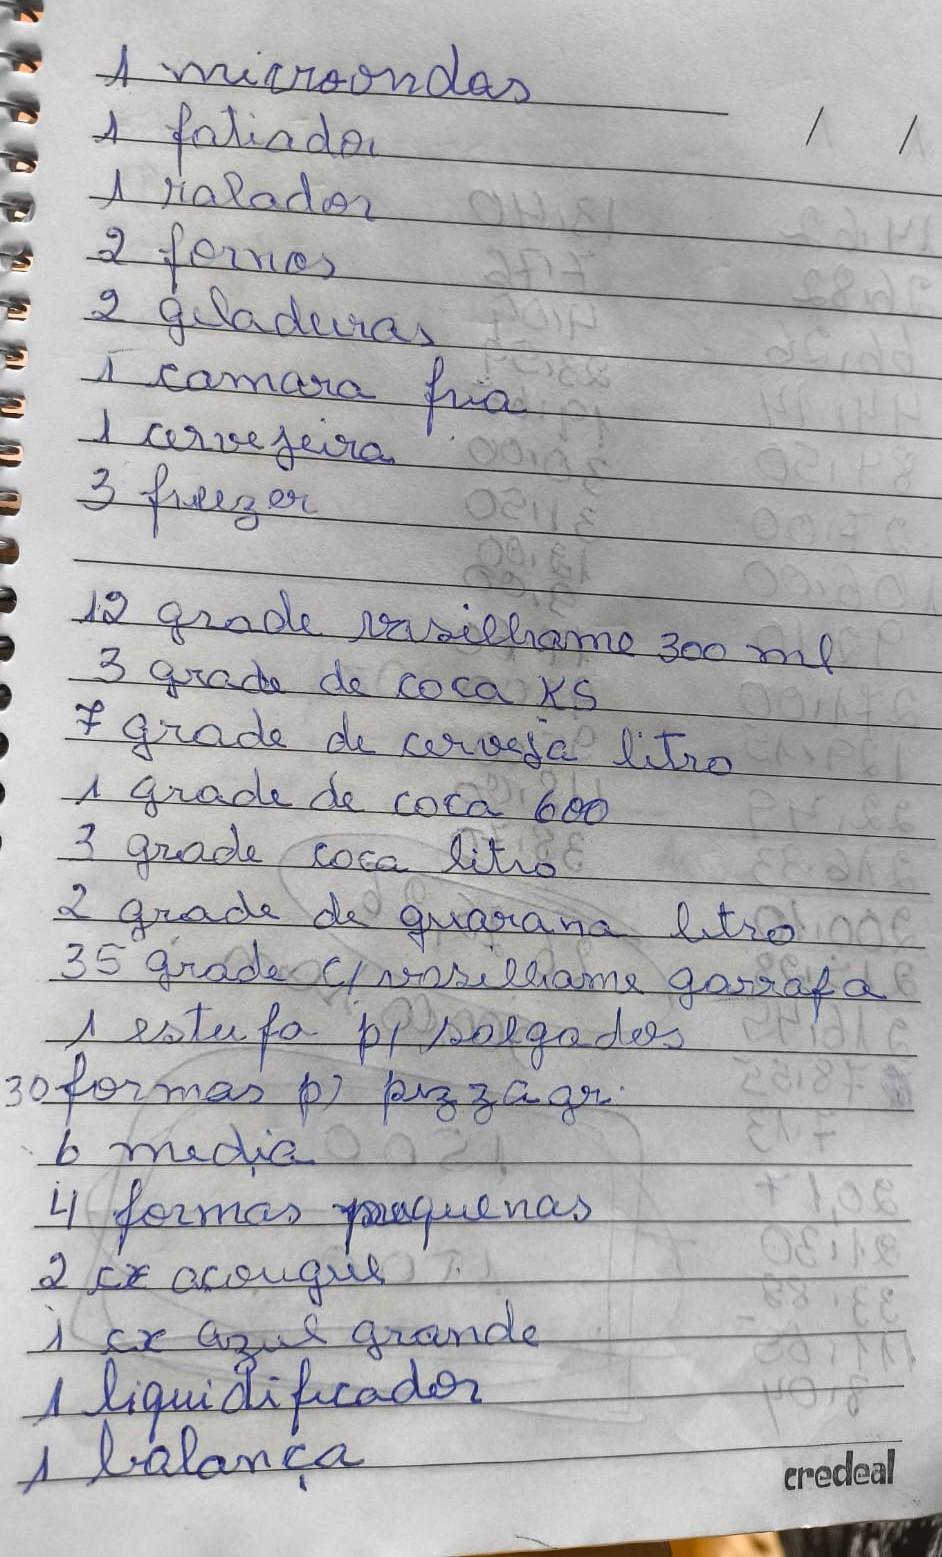 1 microondas
1 fatiador
1 ralador
2 fornos
2 geladeiras
1 camara fria
1 cervejeira
3 freezer
12 grade vasilhame 300 ml
3 grade de coca KS
7 grade de cerveja litro
1 grade de coca 600
3 grade coca litro
2 grade de guarana litro
35 grade c/ vasilhame garrafa
1 estufa p/ salgados
30 formas p/ pizza gr.
6 media
4 formas pequenas
2 cx açougue
1 cx azul grande
1 liquidificador
1 balança
credeal